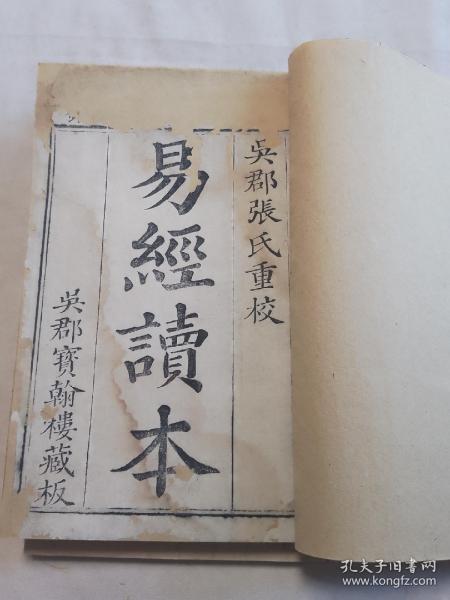 吳郡張氏重校
易經讀本
吳郡寶翰樓藏板
孔夫子旧书网
www.kongfz.com